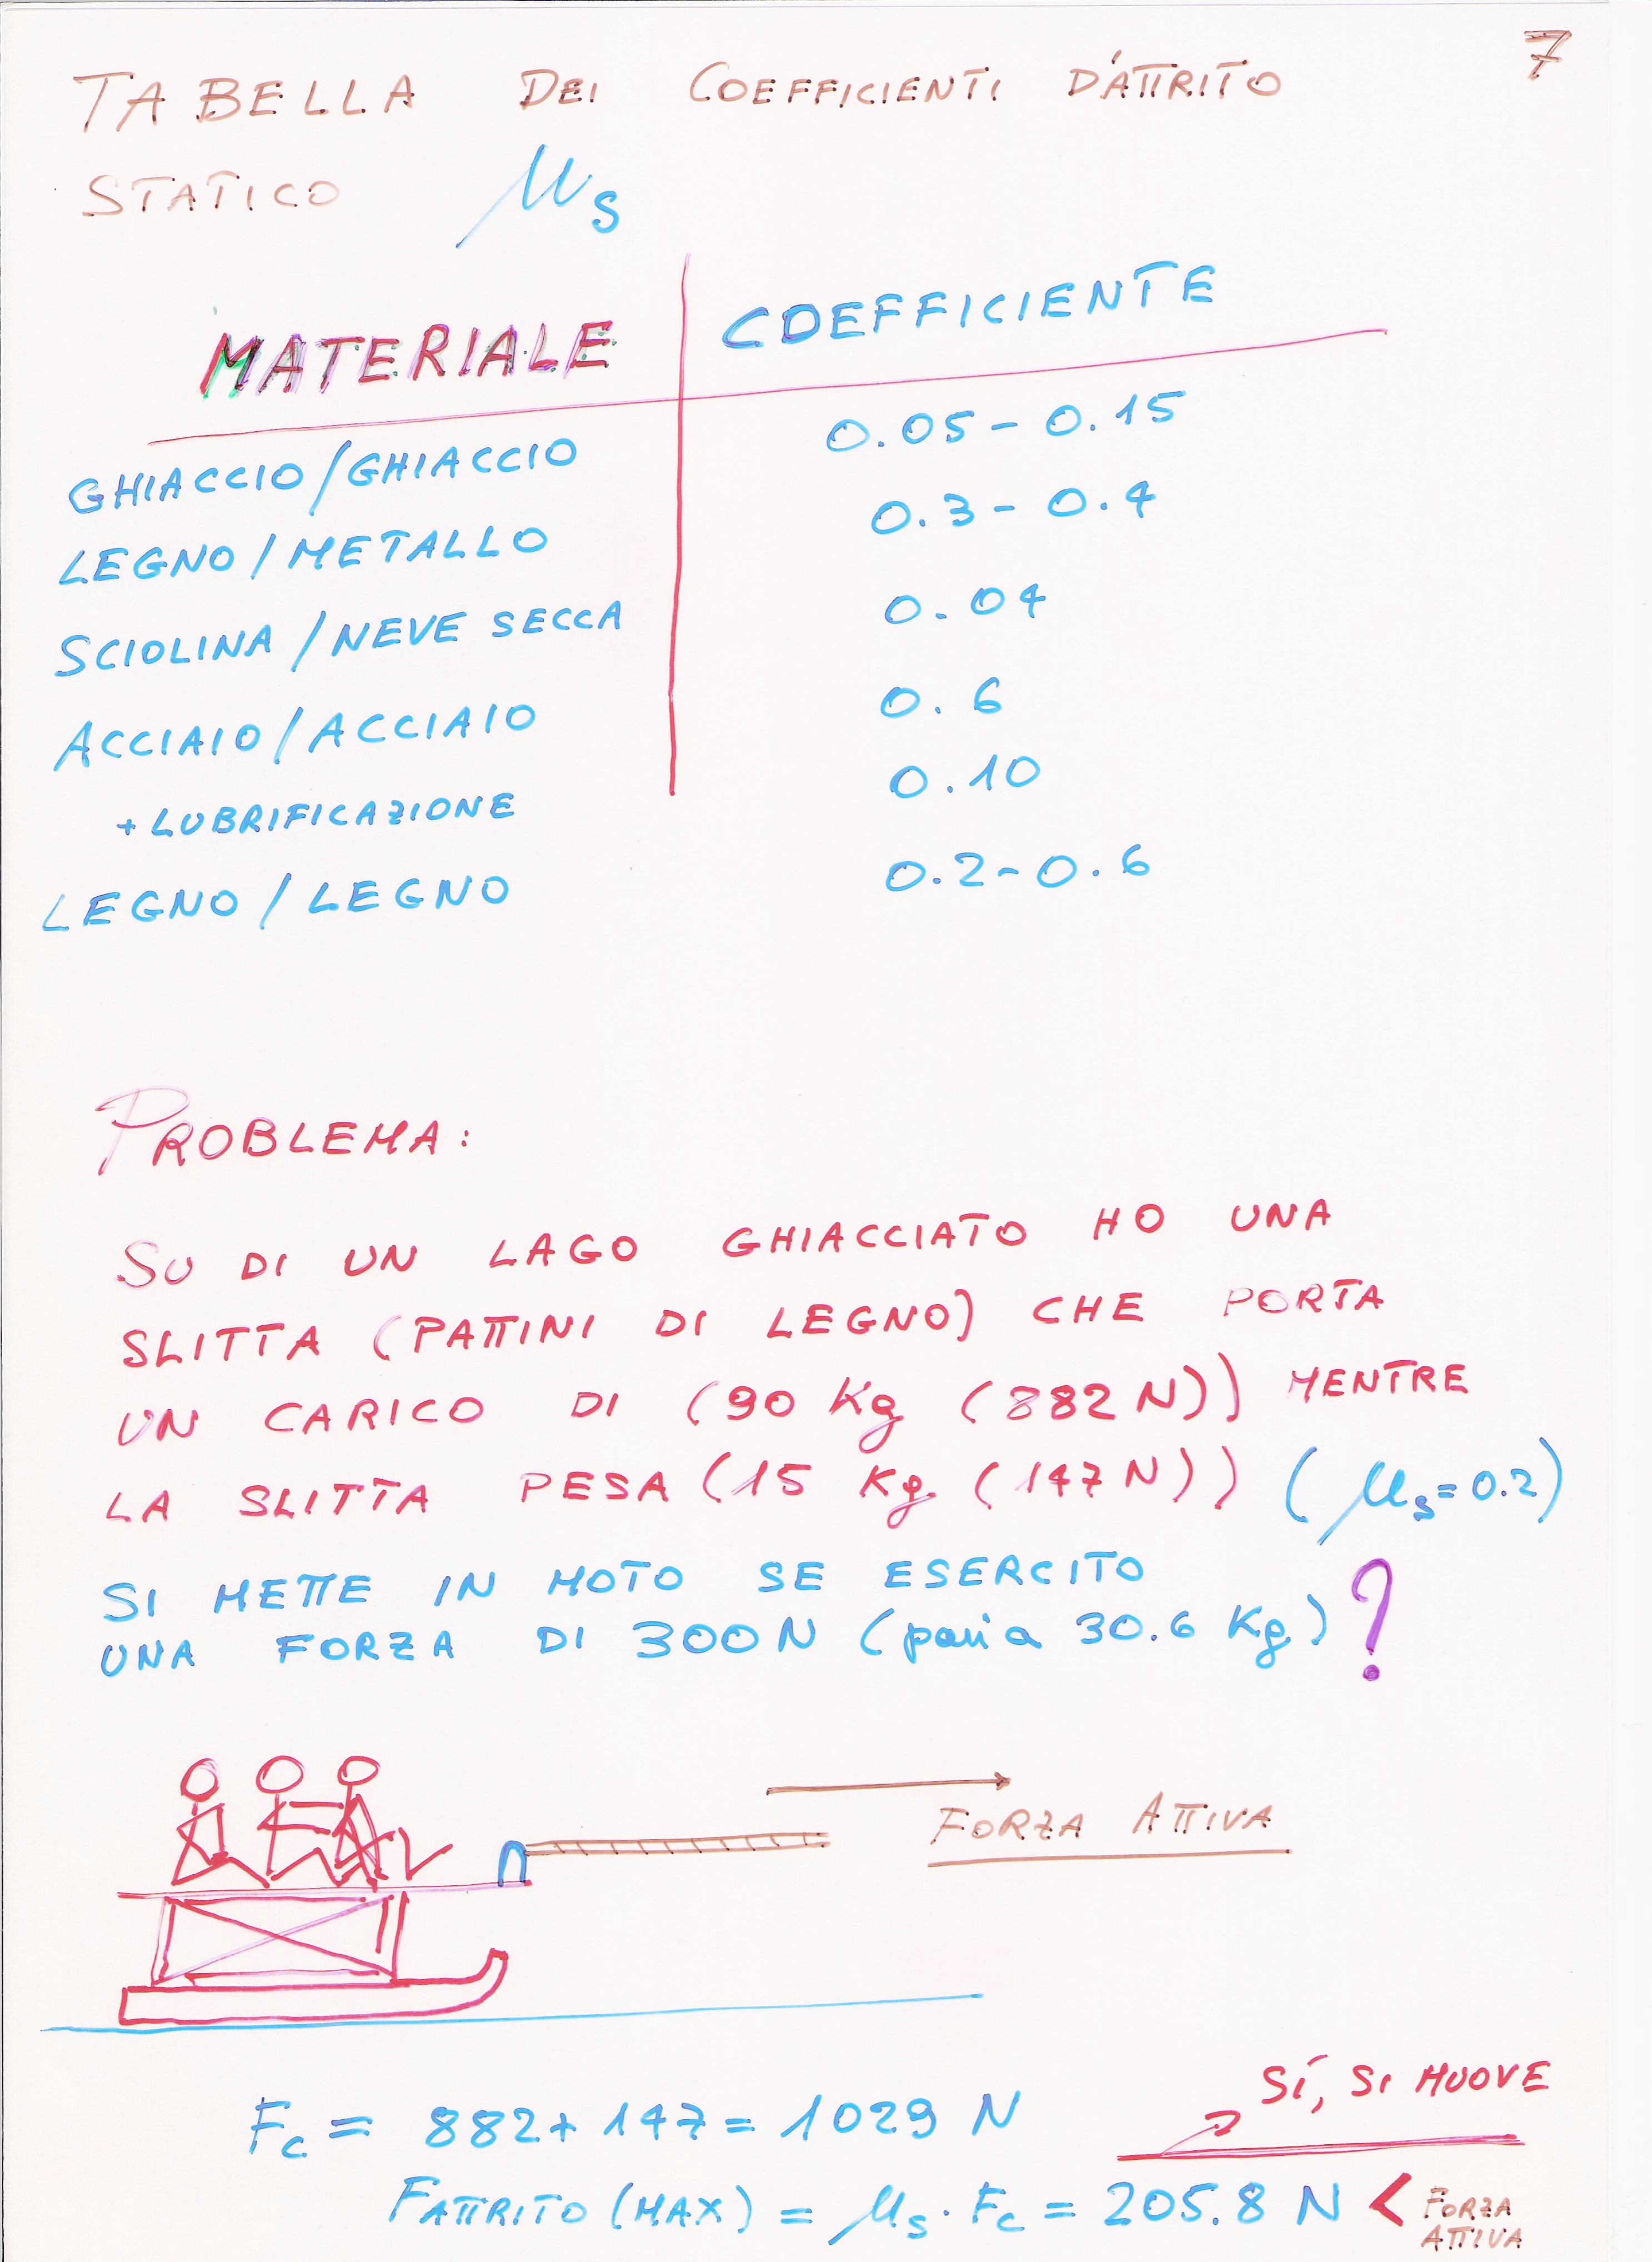 7
TABELLA DEI COEFFICIENTI D'ATTRITO
STATICO μs
MATERIALE COEFFICIENTE
GHIACCIO/GHIACCIO 0.05-0.15
LEGNO/METALLO 0.3-0.4
SCIOLINA/NEVE SECCA 0.04
ACCIAIO/ACCIAIO 0.6
+ LUBRIFICAZIONE 0.10
LEGNO/LEGNO 0.2-0.6
PROBLEMA:
SU DI UN LAGO GHIACCIATO HO UNA
SLITTA (PATTINI DI LEGNO) CHE PORTA
UN CARICO DI (90 Kg (882 N)) MENTRE
LA SLITTA PESA (15 Kg (147 N)) (μs=0.2)
SI METTE IN MOTO SE ESERCITO
UNA FORZA DI 300 N (pari a 30.6 Kg)?
FORZA ATTIVA
SÍ, SI MUOVE
Fc = 882+147=1029 N
FATTRITO (MAX) = μs·Fc = 205.8 N < FORZA
ATTIVA